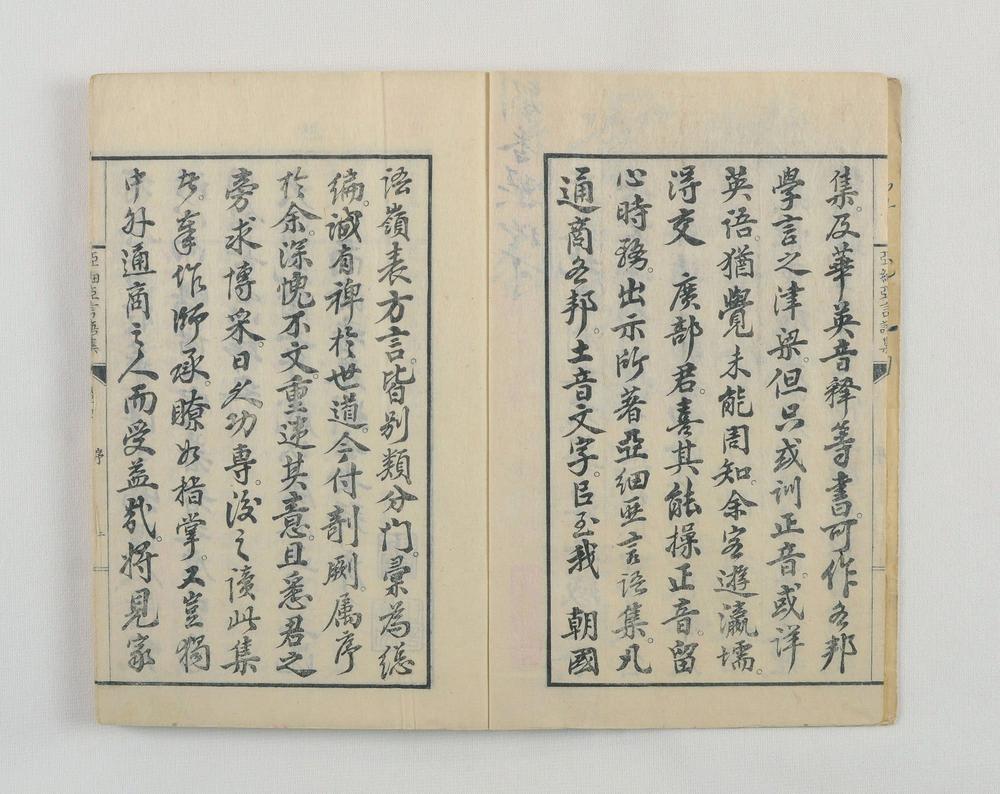 集。及華英音釋等書。可作各邦
學言之津梁。但只或訓正音。或詳
英语。猶覺未能周知。余客遊瀛壖。
淂交 廣部君。喜其能操正音。留
心時務。出示所著亞細亜言语集。凡
通商各邦。土音文字。曁我 朝國
语嶺表方言。皆别類分门。彙為總
編。誠有裨於世道。今付剞劂。属序
於余。深愧不文。重違其意。且悉君之
旁求博采。日久功專。後之讀此集
者。奉作師承。瞭如指掌。又豈獨
中外通商之人而受益哉。將見家
亞細亞言語集
序
亞細亞言語集